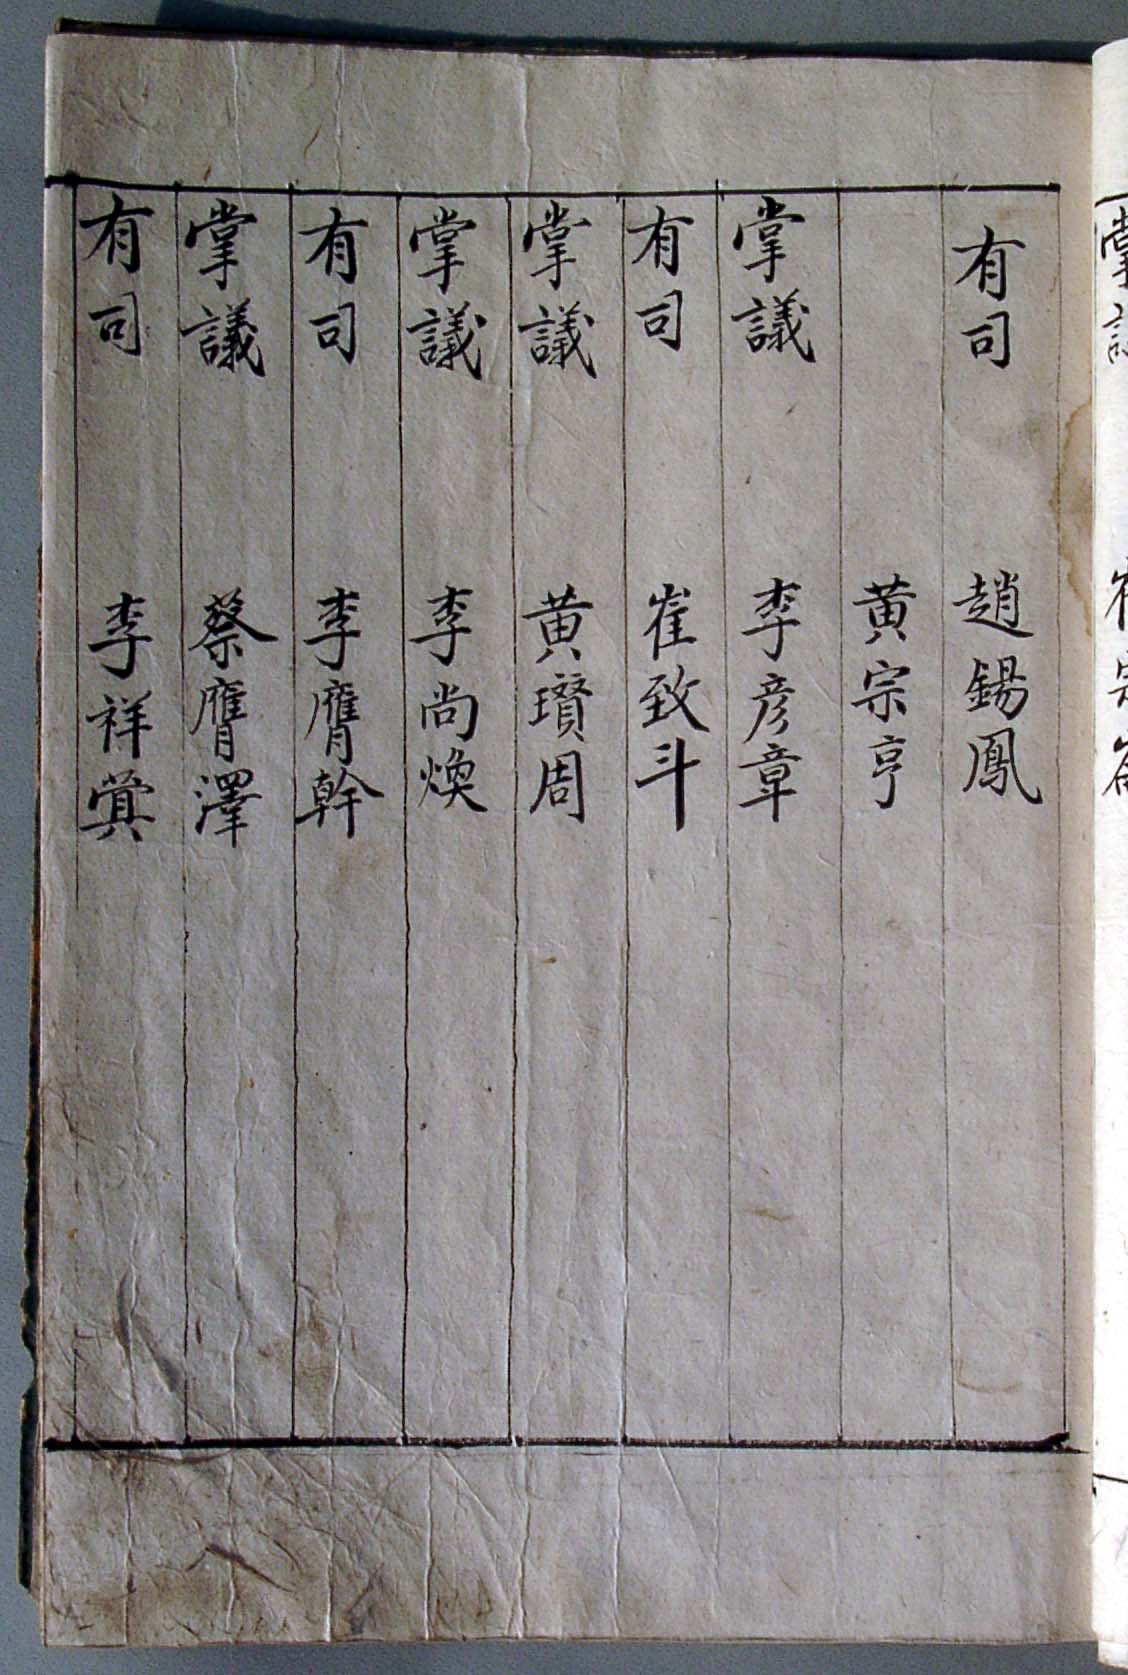 有司 趙錫鳳
黃宗亨
掌議 李彦章
有司 崔致斗
掌議 黃瓚周
掌議 李尚煥
有司 李膺幹
掌議 蔡膺澤
有司 李祥蓂